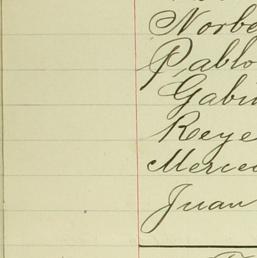 Norbe
Pablo
Gabi
Reye
Merce
Juan